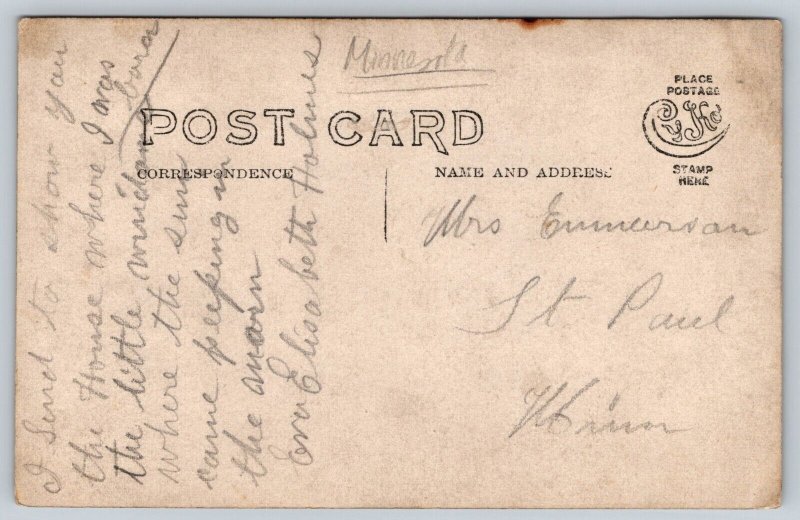 Minnesota
POST CARD
CORRESPONDENCE
NAME AND ADDRESS
PLACE
POSTAGE
STAMP
HERE
I Send to show you
the House where I was
born
the little windows
where the sun
came peeping in
the morn
Eva Elisabeth Holmes
Mrs Emmerson
St Paul
Minn